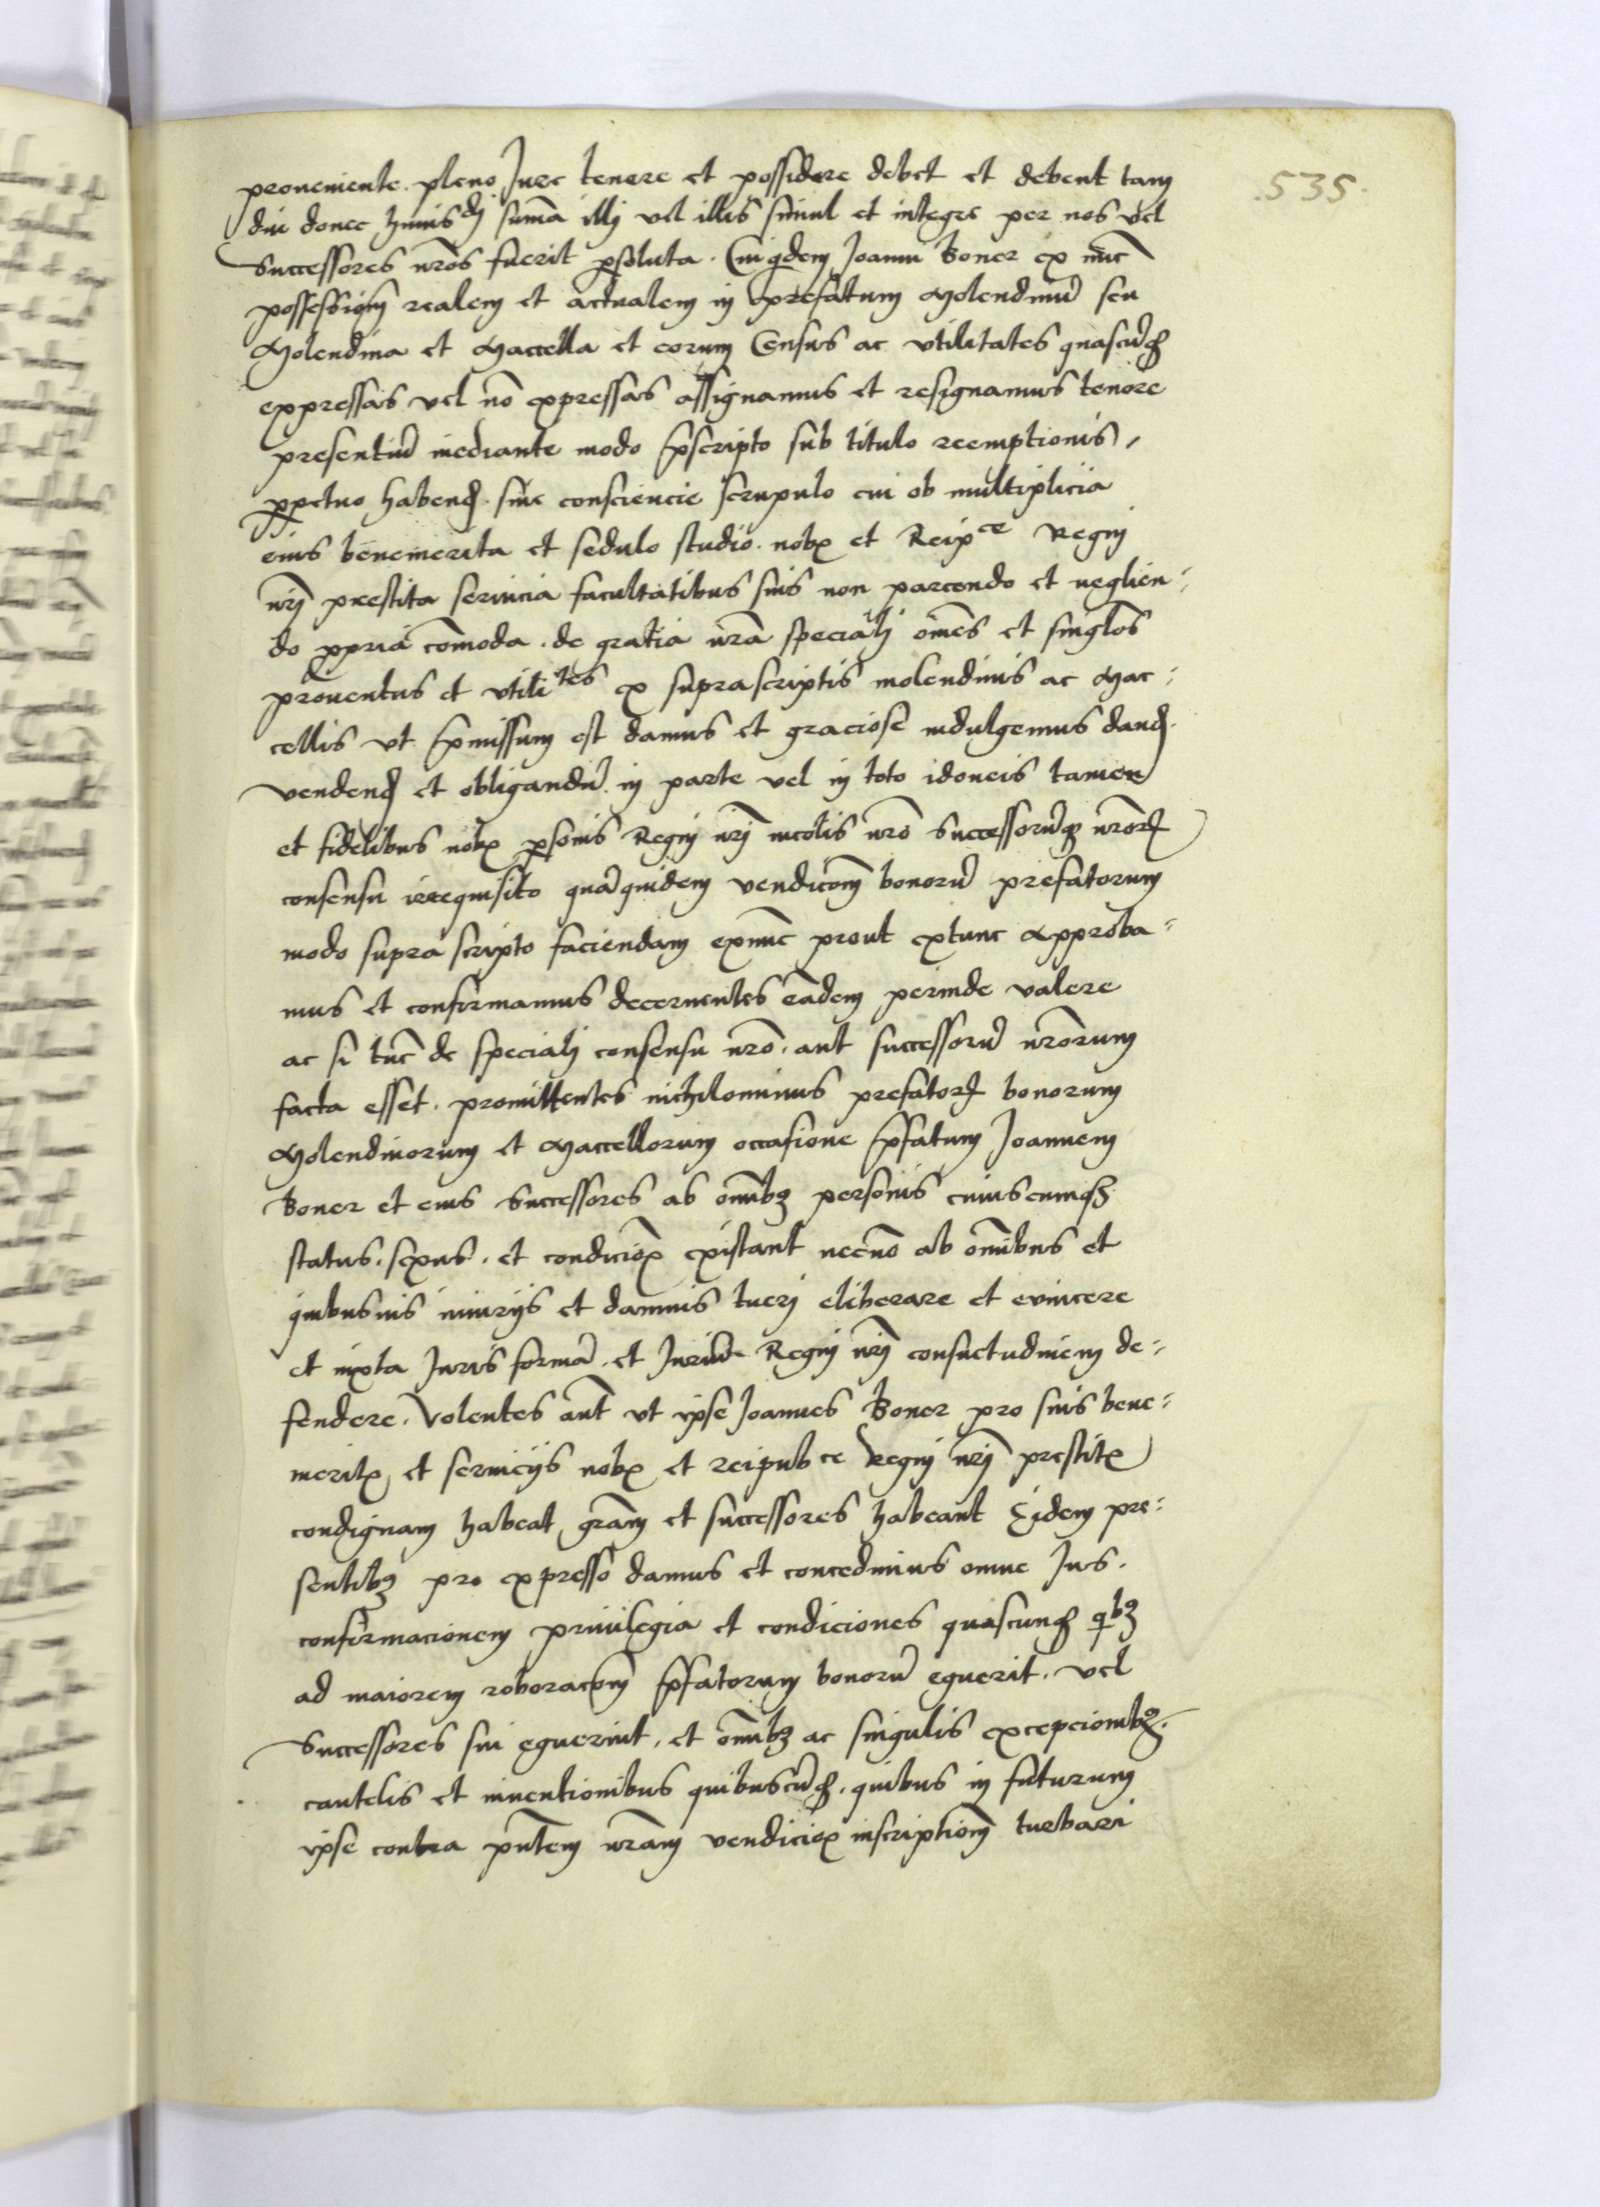 .535.
proueniente. pleno Jure tenere et possidere debet et debent tam
diu donec huiusdj sumā illj vel illis simul et integre per nos vel
Successores nr̄os fuerit ꝑsoluta. Cui qd̄em Joannj Boner ex nūc
possessionē realem et actualem in prefatum Molendinū seu
Molendina et Maccella et eorum Census ac vtilitates quascūqꝫ
expressas vel nō expressas assignamus et resignamus tenore
presentiū mediante modo p̄scripto sub titulo reemptionis,
ꝑpetuo habend. sine consciencie scrupulo cui ob multiplicia
eius benemerita et sedulo studio. nobꝭ et Reipce Regnj
nrj̄ prestita seruicia facultatibus suis non parcendo et neglien-
do ꝓpria cōmoda. de gratia nr̄a specialj ōmes et singlōs
prouentus et vtilites ex suprascriptis molendinis ac Mac-
cellis vt p̄missum est damus et graciose indulgemus dand.
vendend et obligandū. in parte vel in toto idoneis tamen
et fidelibus nobꝭ ꝑsonis Regnj nrj̄ incolis nrō Successorūqꝫ nrōrꝝ
consensu irrequisito quāquidem vendicōnem bonorū prefatorum
modo supra scripto faciendam exnūc prout extunc Approba-
mus et confirmamus decernentes eādem perinde valere
ac si tūc de specialj consensu nrō. aut successorū nrōrum
facta esset. promittentes nichilominus prefatorꝝ bonorum
Molendinorum et Maccellorum occasione p̄fatum Joannem
Boner et eius Successores ab om̄ibꝫ personis cuiuscumqꝫ
status. sexus. et condicioꝭ existant necnō ab om̄ibus et
quibusuis iniurijs et damnis tuerj eliberare et evincere
et iuxta Juris formā. et Jurium Regnj nrj̄ consuetudinem de-
fendere. Volentes aūt vt ipse Joannes Boner pro suis bene-
meritꝭ et seruicijs nobꝭ et reipubce Regnj nrj̄ prestitꝭ
condignam habeat grām et successores habeant Eidem pre-
sentibꝫ pro expresso damus et concedimus omne Jus.
confirmacionem priuilegia et condiciones quascunqꝫ qͥbꝫ
ad maiorem roboracōnem p̄fatorum bonorū eguerit. vel
Successores sui eguerint. et om̄ibꝫ ac singulis excepcionibꝫ.
cautelis et inuentionibus quibuscūqꝫ. quibus in futurum
ipse contra pn̄tem nr̄am vendicioꝭ inscriptionē turbari